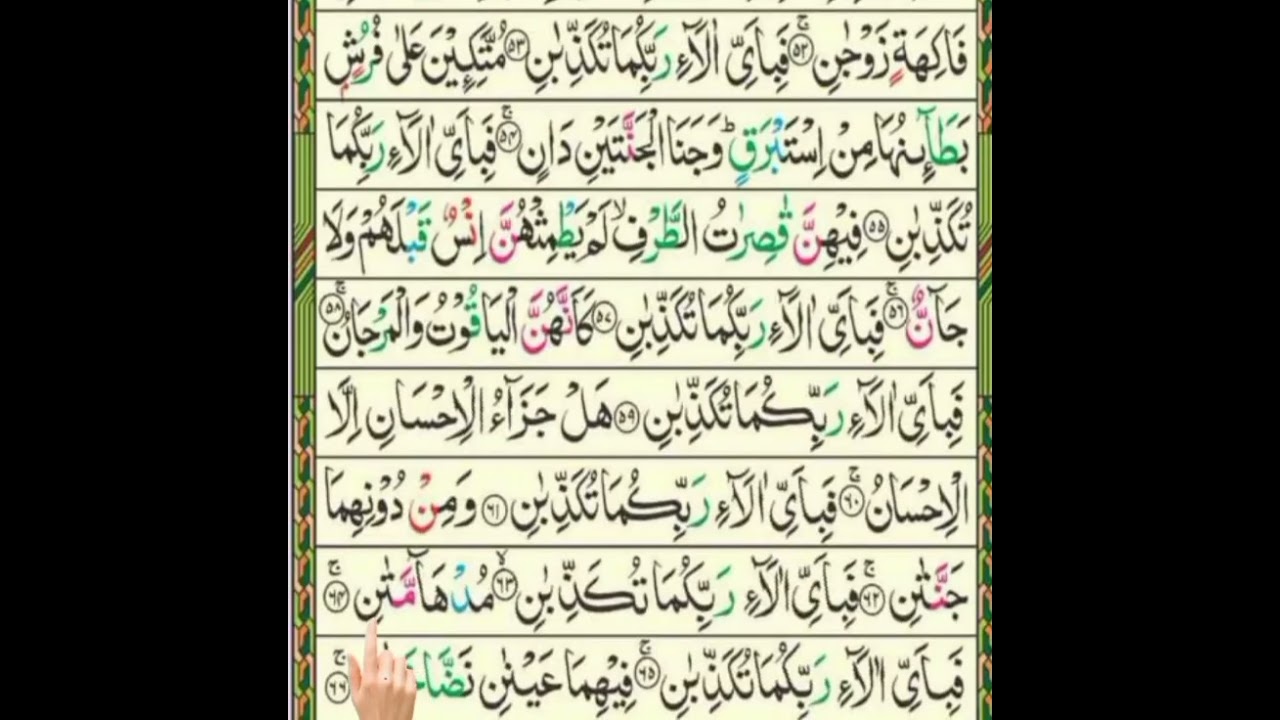 فَاكِهَةٍ زَوْجٰنِ ۚ‏﴿۵۲﴾ فَبِاَىِّ اٰلَآءِ رَبِّكُمَا تُكَذِّبٰنِ ﴿۵۳﴾ مُتَّكِـِٕيْنَ عَلٰى فُرُشٍۭ
بَطَآٮِٕنُهَا مِنْ اِسْتَبْرَقٍ ؕ وَجَنَا الْجَنَّتَيْنِ دَانٍ ۚ‏﴿۵۴﴾ فَبِاَىِّ اٰلَآءِ رَبِّكُمَا
تُكَذِّبٰنِ ﴿۵۵﴾ فِيْهِنَّ قٰصِرٰتُ الطَّرْفِ ۙ لَمْ يَطْمِثْهُنَّ اِنْسٌ قَبْلَهُمْ وَلَا
جَآنٌّ ۚ‏﴿۵۶﴾ فَبِاَىِّ اٰلَآءِ رَبِّكُمَا تُكَذِّبٰنِ ﴿۵۷﴾ كَاَنَّهُنَّ الْيَاقُوْتُ وَالْمَرْجَانُ ۚ‏﴿۵۸﴾
فَبِاَىِّ اٰلَآءِ رَبِّكُمَا تُكَذِّبٰنِ ﴿۵۹﴾ هَلْ جَزَآءُ الْاِحْسَانِ اِلَّا
الْاِحْسَانُ ۚ‏﴿۶۰﴾ فَبِاَىِّ اٰلَآءِ رَبِّكُمَا تُكَذِّبٰنِ ﴿۶۱﴾ وَمِنْ دُوْنِهِمَا
جَنَّتٰنِ ۚ‏﴿۶۲﴾ فَبِاَىِّ اٰلَآءِ رَبِّكُمَا تُكَذِّبٰنِ ۙ‏﴿۶۳﴾ مُدْهَآمَّتٰنِ ۚ‏﴿۶۴﴾
فَبِاَىِّ اٰلَآءِ رَبِّكُمَا تُكَذِّبٰنِ ۚ‏﴿۶۵﴾ فِيْهِمَا عَيْنٰنِ ۚ‏﴿۶۶﴾